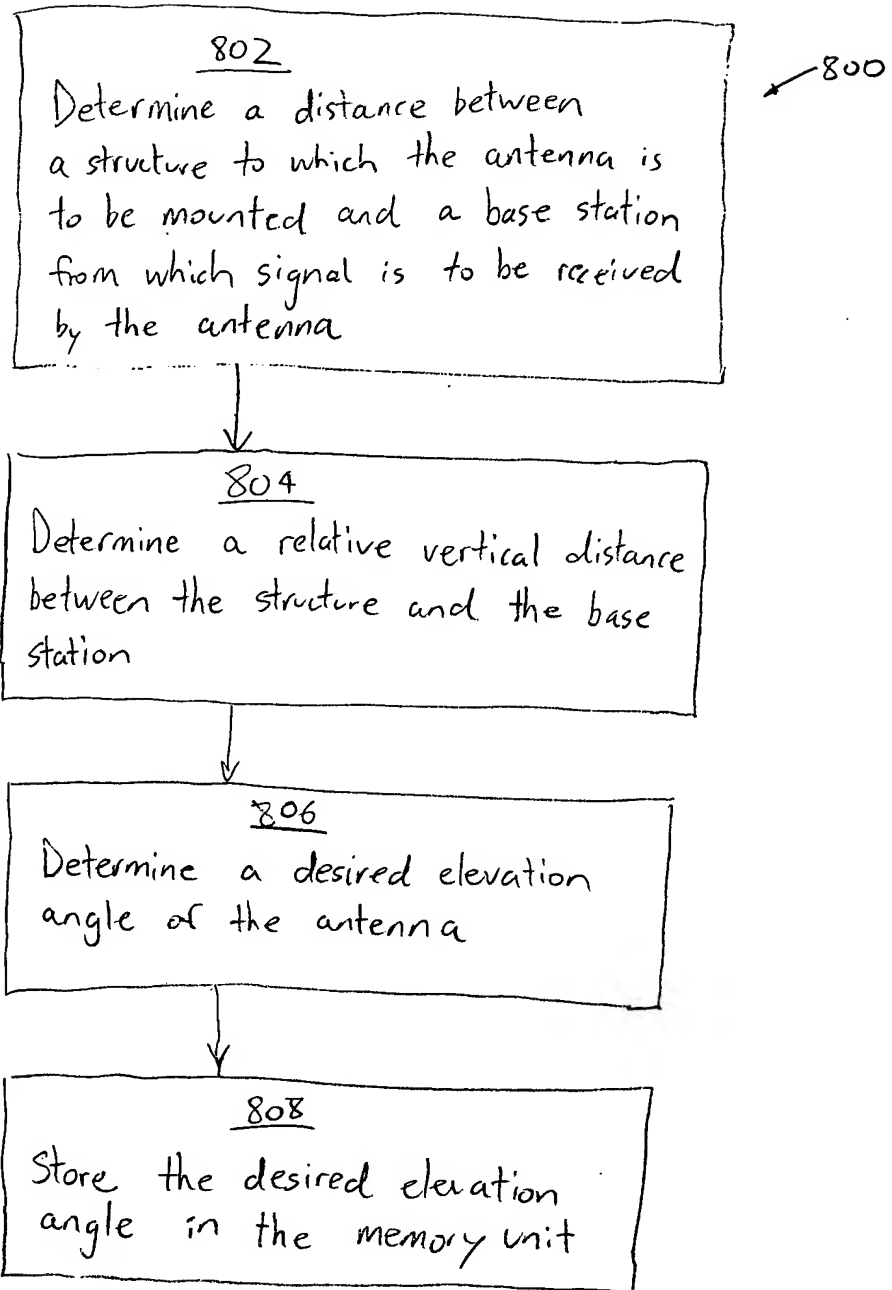 802
800
Determine a distance between
a structure to which the antenna is
to be mounted and a base station
from which signal is to be received
by the antenna
804
Determine a relative vertical distance
between the structure and the base
station
806
Determine a desired elevation
angle of the antenna
808
Store the desired elevation
angle in the memory unit